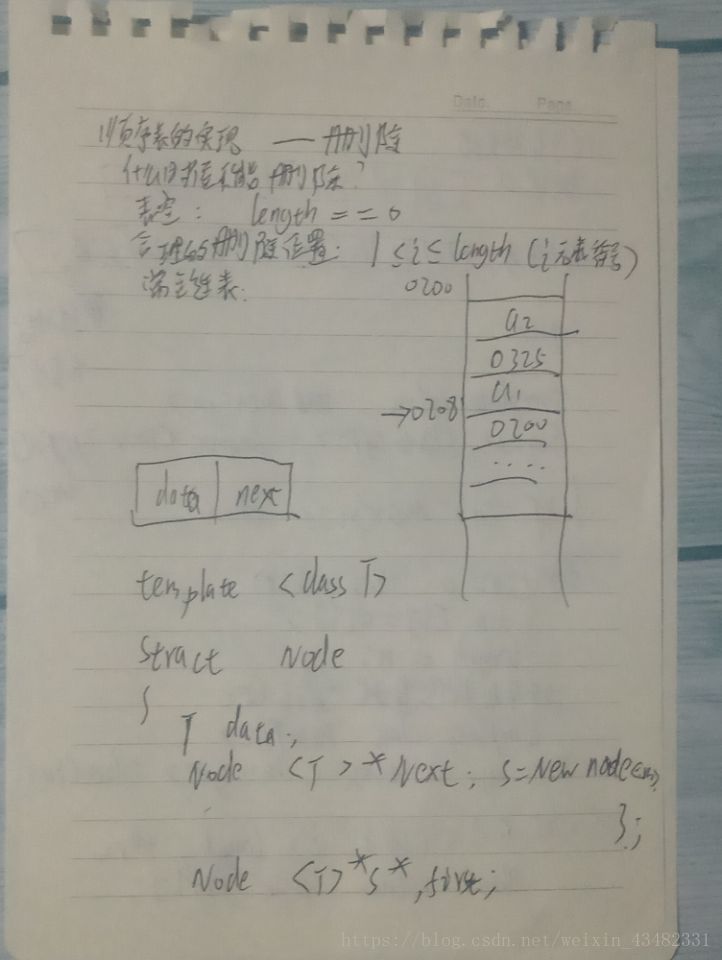 Date. Page
顺序表的实现 — 删除
什么时候不能删除?
表空: length == 0
合理的删除位置: 1 ≤ i ≤ length (i元素符号)
单链表:
0200
a2
0325
a1
→0208
0200
....
data next
template <class T>
Struct Node
{
T data;
Node <T> * Next; S=New node<int>
};
Node <T>*S*,first;
https://blog.csdn.net/weixin_43482331